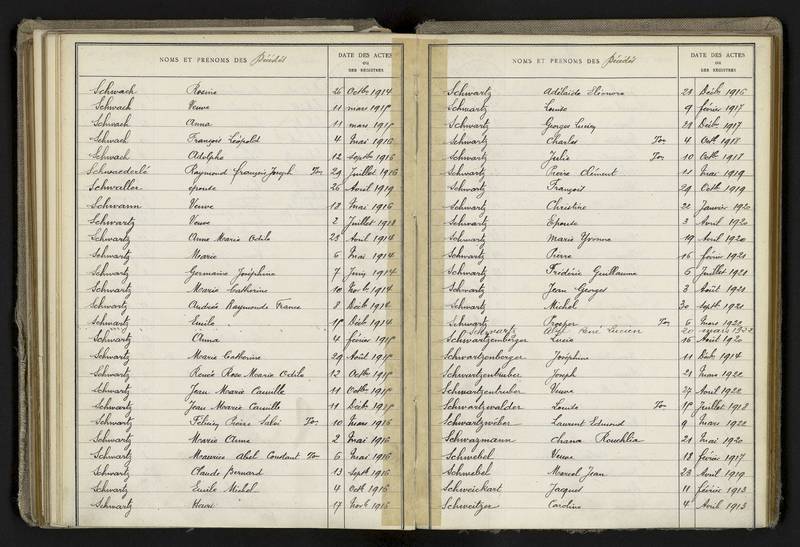 NOMS ET PRÉNOMS DES Décédés
DATE DES ACTES
OU
DES REGISTRES
Schwach Rosine 26 Octbre 1914
Schwach Veuve 11 mars 1915
Schwach Anna 11 mars 1915
Schwach François Léopold 4 Mai 1916
Schwach Adolphe 12 Septbre 1916
Schwaederlé Raymond François Joseph Ton 29 Juillet 1916
Schwaller épouse 26 Avril 1919
Schwann Veuve 18 Mai 1916
Schwartz Veuve 2 Juillet 1918
Schwartz Anne Marie Odile 23 Avril 1914
Schwartz Marie 6 Mai 1914
Schwartz Germaine Joséphine 7 Juin 1914
Schwartz Marie Catherine 10 Novbre 1914
Schwartz Andrée Raymonde France 8 Décbre 1914
Schwartz Emile 15 Décbre 1914
Schwartz Anna 4 février 1915
Schwartz Marie Catherine 29 Août 1915
Schwartz Renée Rose Marie Odile 12 Octbre 1915
Schwartz Jean Marie Camille 11 Octbre 1915
Schwartz Jean Marie Camille 11 Décbre 1915
Schwartz Félicien Pierre Ton 10 Mars 1916
Schwartz Marie Anne 2 Mai 1916
Schwartz Maurice Abel Constant Ton 6 Mai 1916
Schwartz Claude Bernard 13 Septbre 1916
Schwartz Emile Michel 4 Octbre 1916
Schwartz Henri 17 Novbre 1916
NOMS ET PRÉNOMS DES Décédés
DATE DES ACTES
OU
DES REGISTRES
Schwartz Adélaïde Eléonore 28 Décbre 1916
Schwartz Louise 9 février 1917
Schwartz Georges Lucien 29 Décbre 1917
Schwartz Charles Ton 4 Octbre 1918
Schwartz Julie Ton 10 Octbre 1918
Schwartz Pierre Clément 11 Mai 1919
Schwartz François 29 Octbre 1919
Schwartz Christine 22 Janvier 1920
Schwartz Epouse 3 Avril 1920
Schwartz Marie Yvonne 19 Avril 1920
Schwartz Pierre 16 février 1921
Schwartz Frédéric Guillaume 5 Juillet 1921
Schwartz Jean Georges 2 Août 1921
Schwartz Michel 30 Septbre 1921
Schwartz Prosper Ton 6 Mars 1920
Schwartz René Lucien 20 mars 1922
Schwartzenberger Lucie 16 Août 1920
Schwartzenberger Joséphine 11 Décbre 1914
Schwartzentruber Joseph 21 Mars 1920
Schwartzentruber Veuve 27 Avril 1922
Schwartzwalder Louise Ton 15 Juillet 1918
Schwartzwéber Laurent Edmond 9 Mars 1922
Schwazmann Chana Rouchlia 21 Mai 1920
Schwebel Veuve 13 février 1917
Schwebel Marcel Jean 23 Avril 1919
Schweickart Jacques 11 février 1913
Schweitzer Caroline 4 Avril 1913